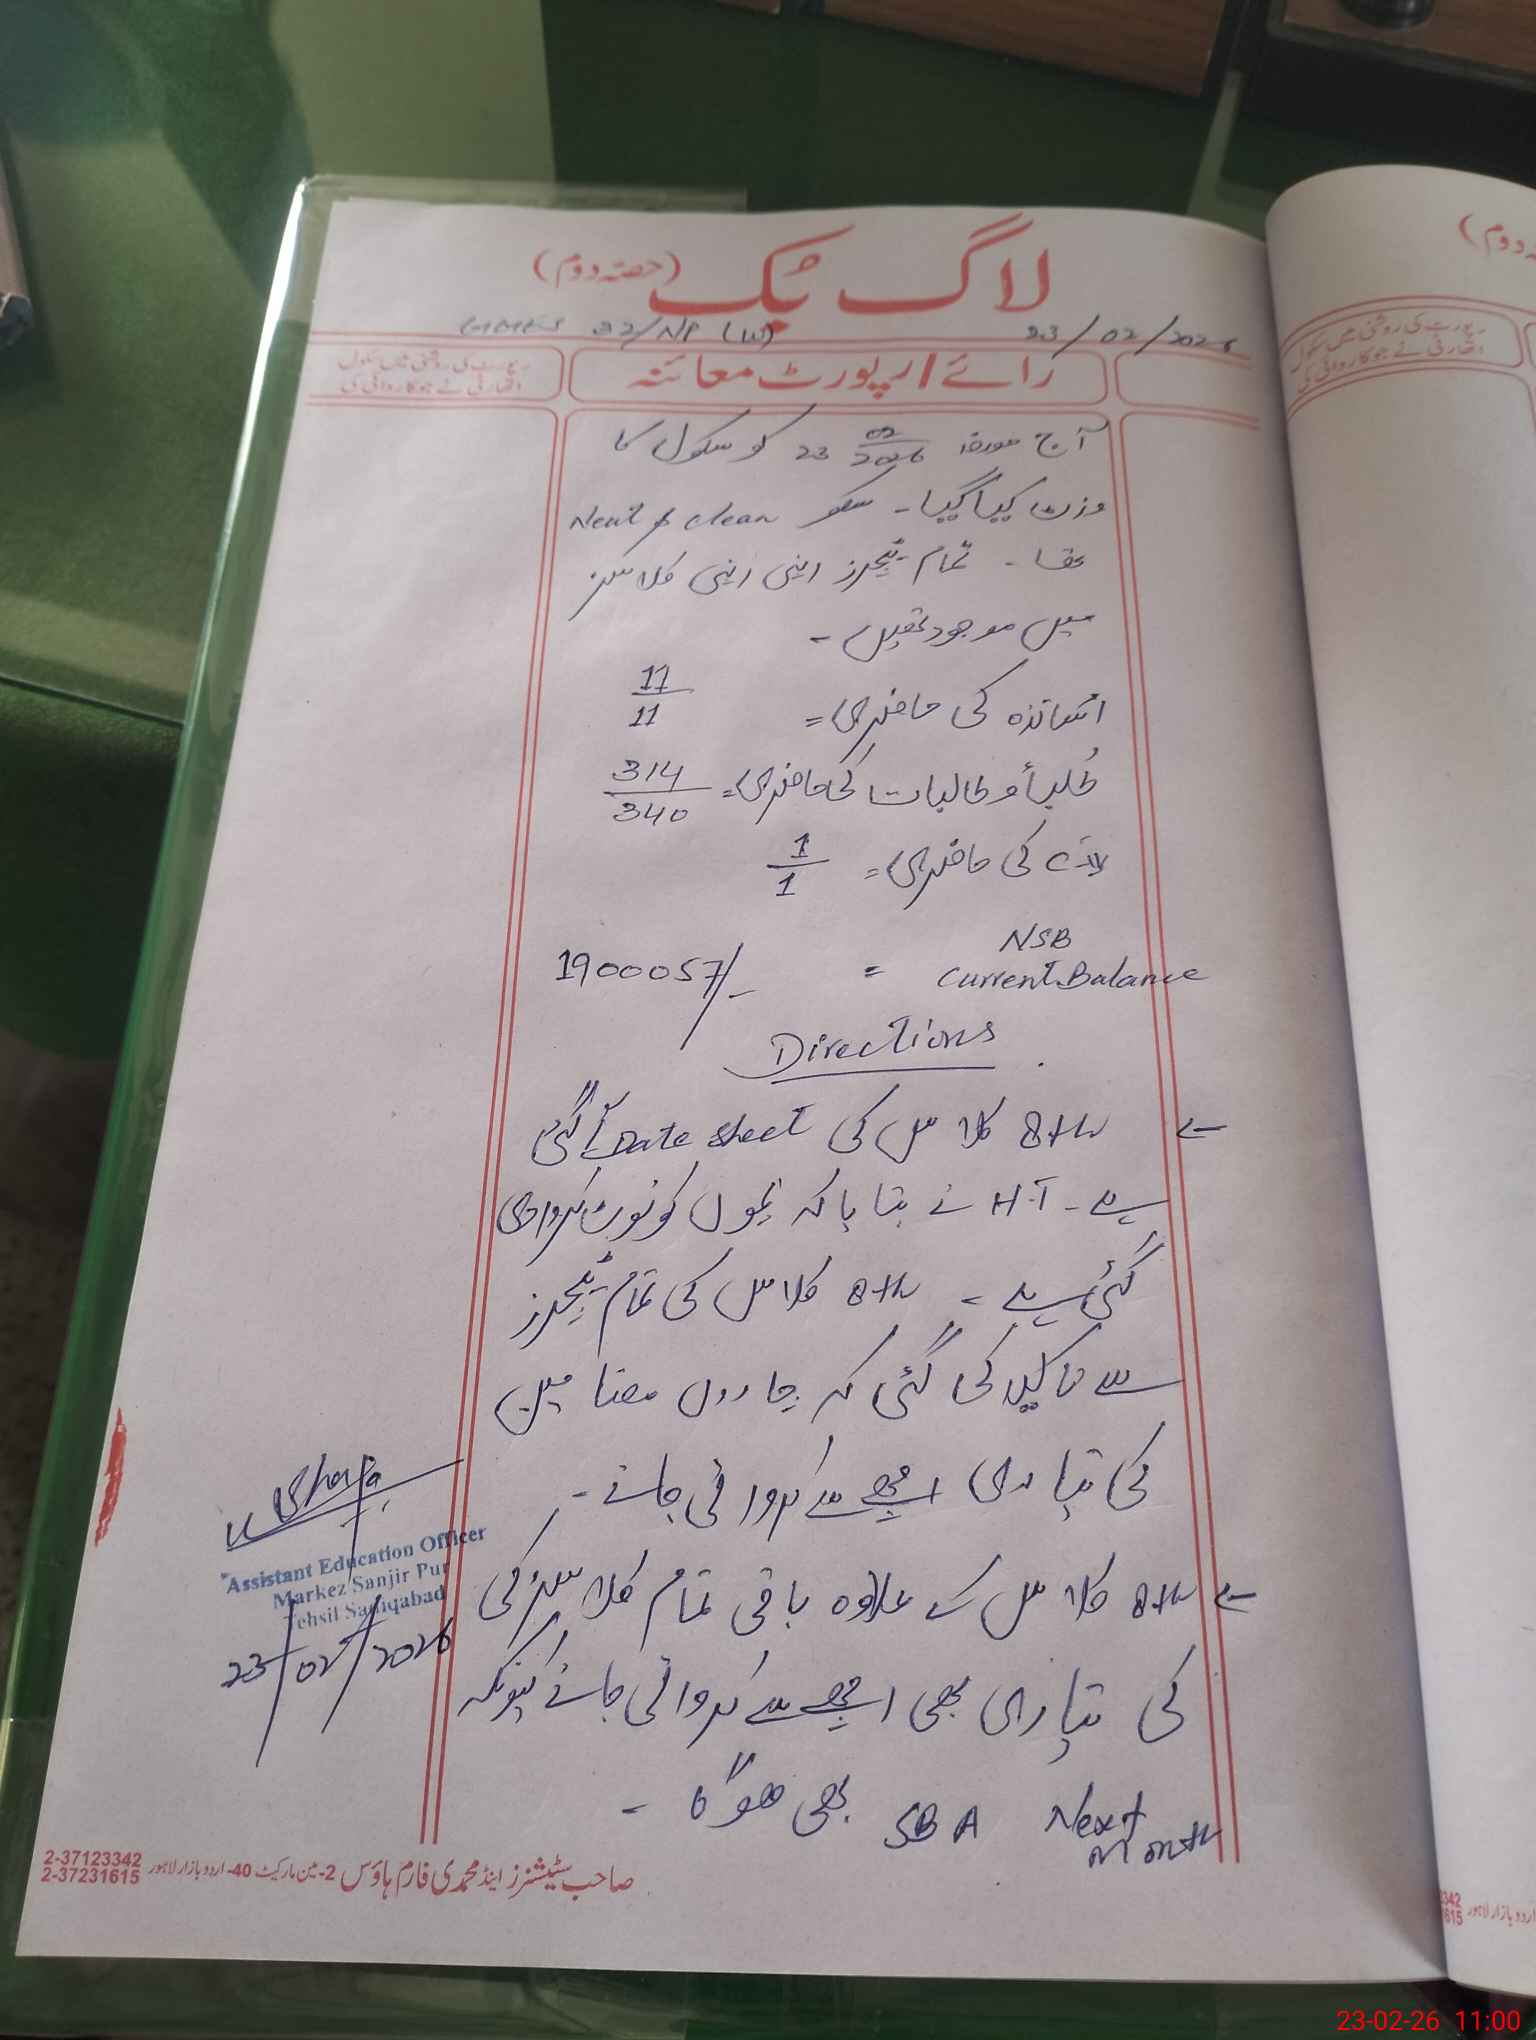 لاگ بُک (حصّہ دوم)
23/02/2026 32/NP (W)
رائے / رپورٹ معائنہ
رپورٹ کی روشنی میں سکول
اتھارٹی نے جو کاروائی کی
آج مورخہ 23 02/2026 کو سکول کا
وزٹ کیا گیا۔ سکول Neat & clean
تھا۔ تمام ٹیچرز اپنی اپنی کلاسز
میں موجود تھیں۔
اساتذہ کی حاضری = 11/11
طلبأ و طالبات کی حاضری = 314/340
کی حاضری = 1/1
NSB
Current Balance = 1900057/-
Directions
← 8th کلاس کی Date sheet آ گئی
ہے۔ H.T نے بتایا کہ بچوں کو نوٹ کروا دی
گئی ہے۔ 8th کلاس کی تمام ٹیچرز
سے تاکید کی گئی کہ چاروں مضامین
کی تیاری اچھے سے کروائی جائے۔
← 8th کلاس کے علاوہ باقی تمام کلاسز کی
کی تیاری بھی اچھے سے کروائی جائے کیونکہ
Next Month SBA بھی ہوگا۔
Assistant Education Officer
Markez Sanjir Pur
Tehsil Sadiqabad
23/02/2026
صاحب سٹیشنرز اینڈ محمدی فارم ہاؤس 2-مین مارکیٹ 40-اردو بازار لاہور
2-37123342
2-37231615
رپورٹ کی روشنی میں سکول
اتھارٹی نے جو کاروائی کی
342
1615
اردو بازار لاہور
23-02-26 11:00